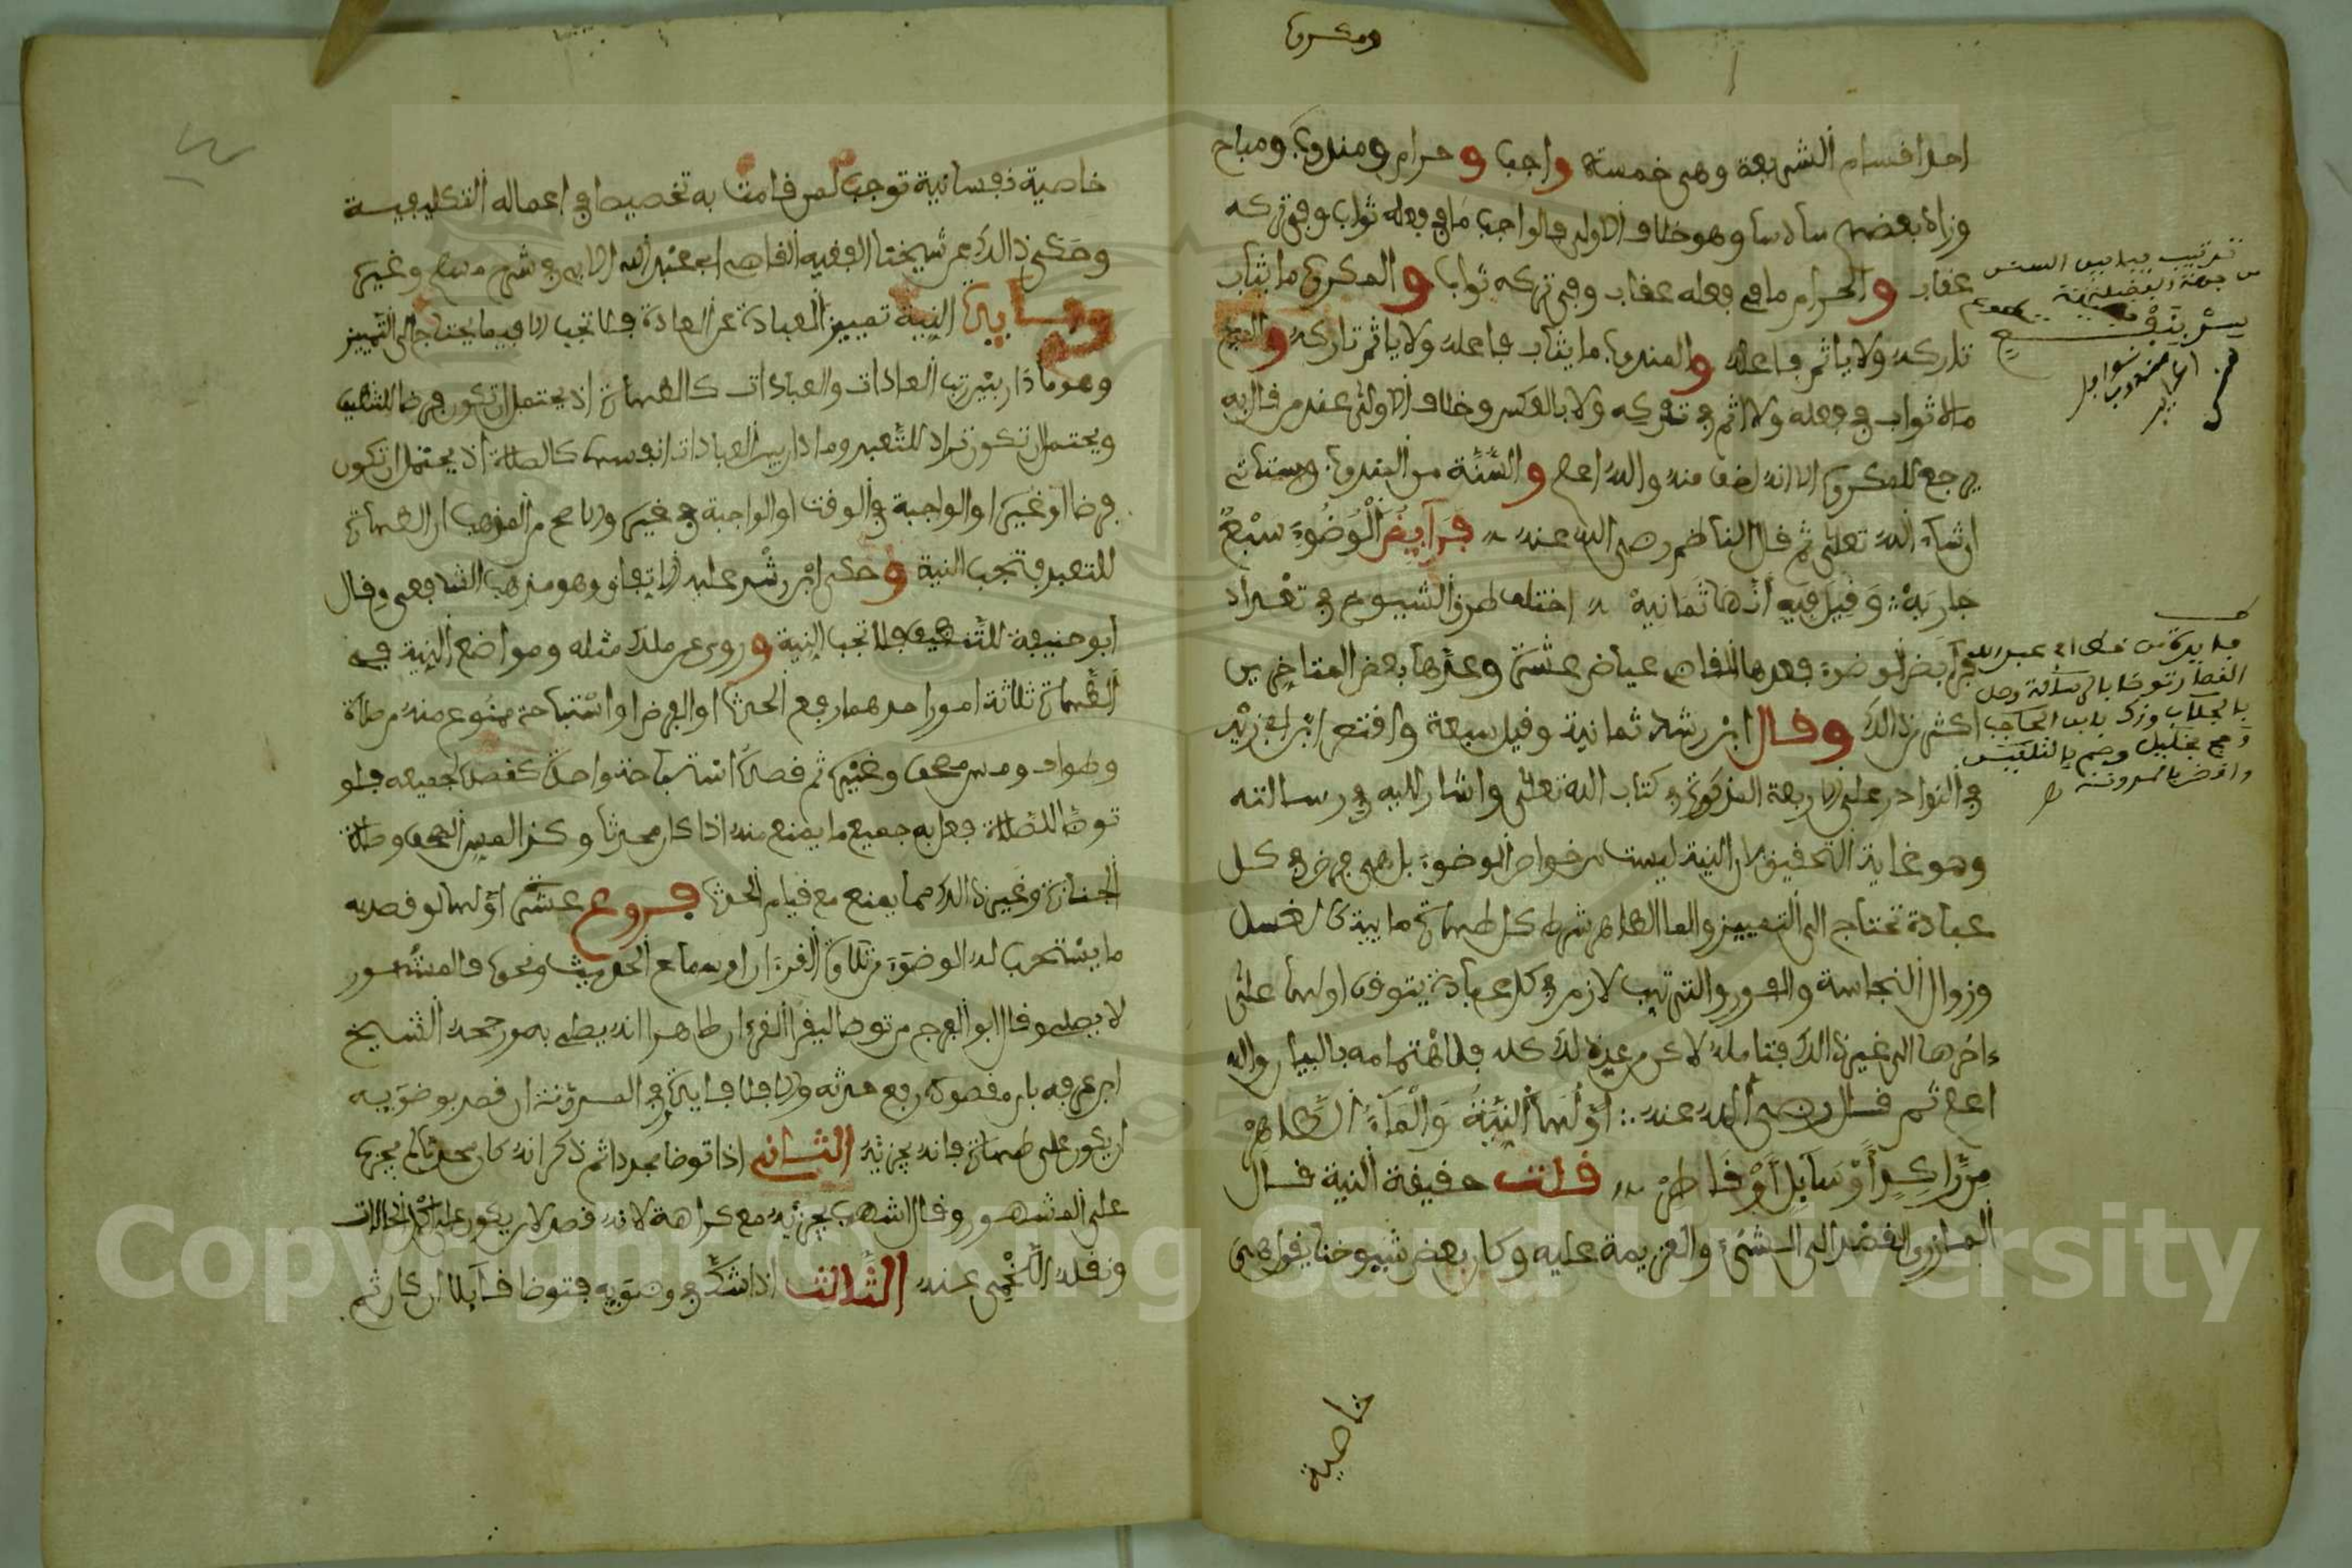 ومكروه
احد اقسام الشريعة وهى خمسة واجب وحرام ومندوب ومباح
وزاد بعضهم سادسا وهو خلاف الاولى فالواجب ما فى فعله ثواب وفى تركه
عقاب والحرام ما فى فعله عقاب وفى تركه ثواب والمكروه ما يثاب
تاركه ولا ياثم فاعله والمندوب ما يثاب فاعله ولا ياثم تاركه والمباح
مالا ثواب فى فعله ولا اثم فى تركه ولا بالعكس وخلاف الاولى عند من قال به
يرجع للمكروه الا انه اخف منه والله اعلم والسُّنَّة من المندوب وستاتى
ان شاء الله تعلى ثم قال الناظم رضى الله عنه فَرَآيِضُ الْوُضُوءِ سَبْعٌ
جاريَهْ وَقِيلَ فِيهِ أَنَّهَا ثَمَانيهْ اختلف طرق الشيوخ فى تعداد
فرآيض الوضوء فعدها القاضى عياض عشرة وعدّها بعض المتاخرين
اكثر من ذالك وقال ابن رشد ثمانية وقيل سبعة واقتصر ابن ابى زيد
فى النوادر على الاربعة المذكورة فى كتاب الله تعلى واشار اليه فى رسالته
وهو غاية التحقيق لان النية ليست من خواص الوضوء بل هى فرض فى كل
عبادة تحتاج الى التمييز والما الطاهر شرط كل طهارة مايية كالغسل
وزوال النجاسة والفور والترتيب لازم فى كل عبادة يتوقف اولها على
ءاخرها الى غير ذالك فتامله لاكن من عد ذلك كله فلاهتمامه بالبيان والله
اعلم ثم قال رضى الله عنه أوّلها النيّةُ وَالْمَآءُ الطّاهِرْ
مِن رَّاكِدٍ أَوْ سَآيِلٍ أَوْ قَاطِرْ قلت حقيقة النية قال
المازرى القصد الى الشىء والعزيمة عليه وكان بعض شيوخنا يقول هى
خاصية
ترتيب
فرآيض
خاصية نفسانية توجب لمن قامت به تخصيصا فى اعماله التكليفية
وحكى ذالك عن شيخنا الفقيه القاضى ابى عبد الله الابى فى شرح مسلم وغيره
وفايدة النية تمييز العبادة عن العادة فلا تجب الا فيما يحتاج الى التمييز
وهو ما دار بين رتب العادات والعبادات كالطهارة اذ يحتمل ان تكون فرضا للتنظيف
ويحتمل ان تكون تراد للتعبد وما دار بين العبادات انفسها كالصلاة اذ يحتمل ان تكون
فرضا او غيره او الواجبة فى الوقت او الواجبة فى غيره والاصح من المذهب ان الطهارة
للتعبد فتجب النية وحكى ابن رشد عليه الاتفاق وهو مذهب الشافعى وقال
ابو حنيفة للتنظيف فلا تجب النية وروى عن ملك مثله ومواضع النية فى
الطهارة ثلاثة امور احدهما رفع الحدث او الفرض او استباحة ممنوع منه من صلاة
وطواف ومس مصحف وغيره ثم قصد استباحة واحد كقصد جميعه فلو
توضا للصلاة فعل به جميع ما يمنع منه اذا كان محدثا وكذا لمس المصحف وصلاة
الجنازة وغير ذالك مما يمنع مع قيام الحدث فروع عشرة اوّلها لو قصد به
ما يستحب له الوضوء من تلاوة القرءان او سماع الحديث ونحوه فالمشهور
لا يصلى وقال ابو الفرج من توضا ليقرا القرءان طاهرا انه يصلى به ورجحه الشيخ
ابن عرفة بان مقصوده رفع حدثه والا فلا فايدة وفى المدوّنة ان قصد بوضوئه
ان يكون على طهارة فانه يجزئه الثانى اذا توضا مجددا ثم ذكر انه كان محدثا لم يجزه
على المشهور وقال اشهب يجزئه مع كراهة لانه قصد لان يكون على اكمل الحالات
ونقله اللخمى عنه الثالث اذا شك فى وضوئه فتوضا قآيلا ان كان ثم